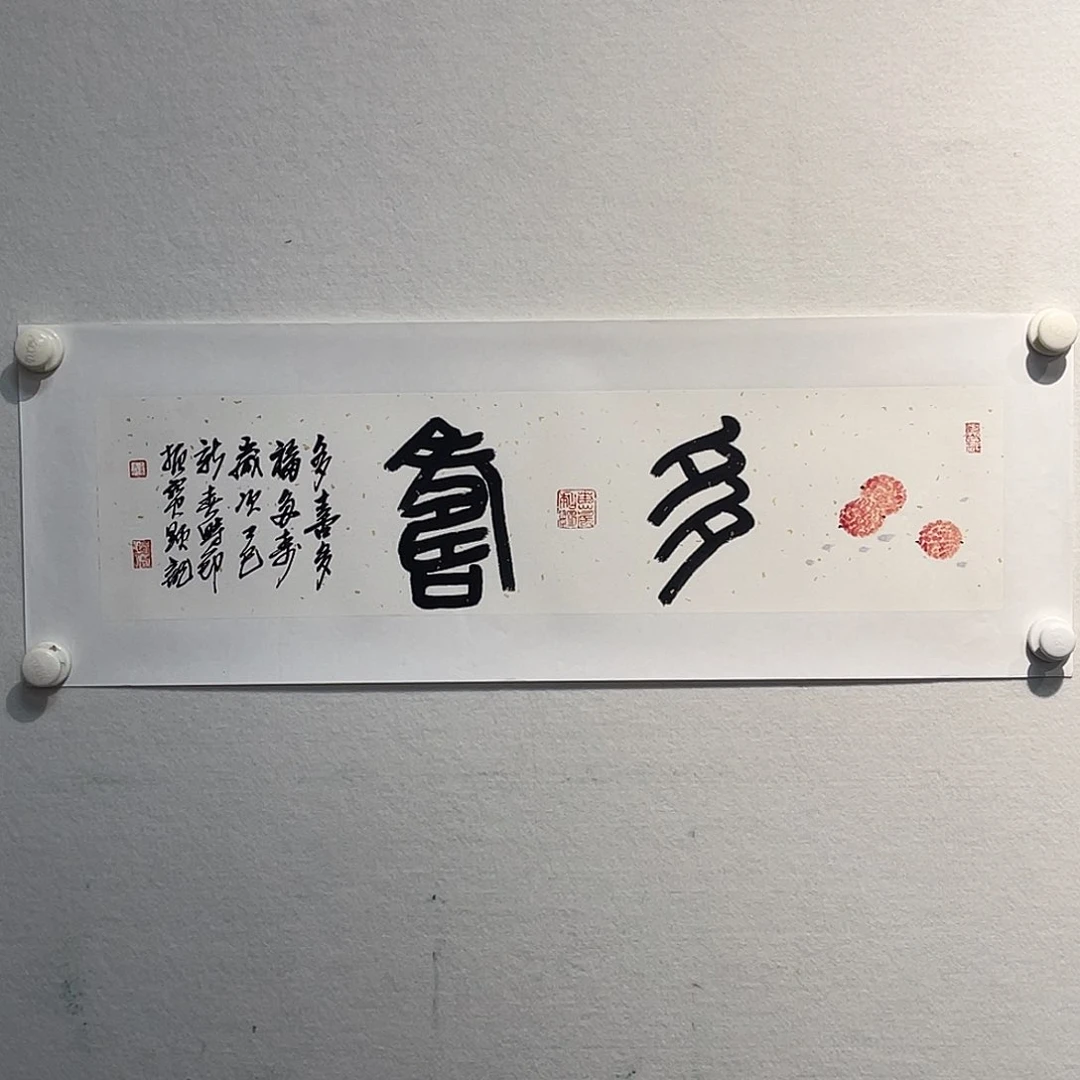 多壽
多喜多
福多寿
歲次 巳
新春時節
振 題記